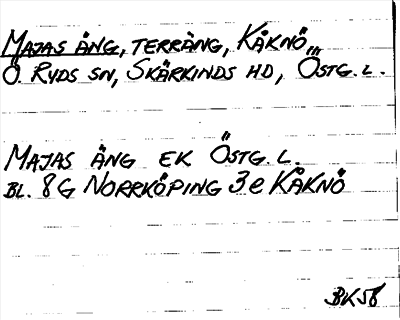 MAJAS ÄNG, TERRÄNG, KÅKNÖ
Ö. RYDS SN, SKÄRKINDS HD, ÖSTG. L.
MAJAS ÄNG EK ÖSTG. L.
BL. 8G NORRKÖPING 3e KÅKNÖ
BK58